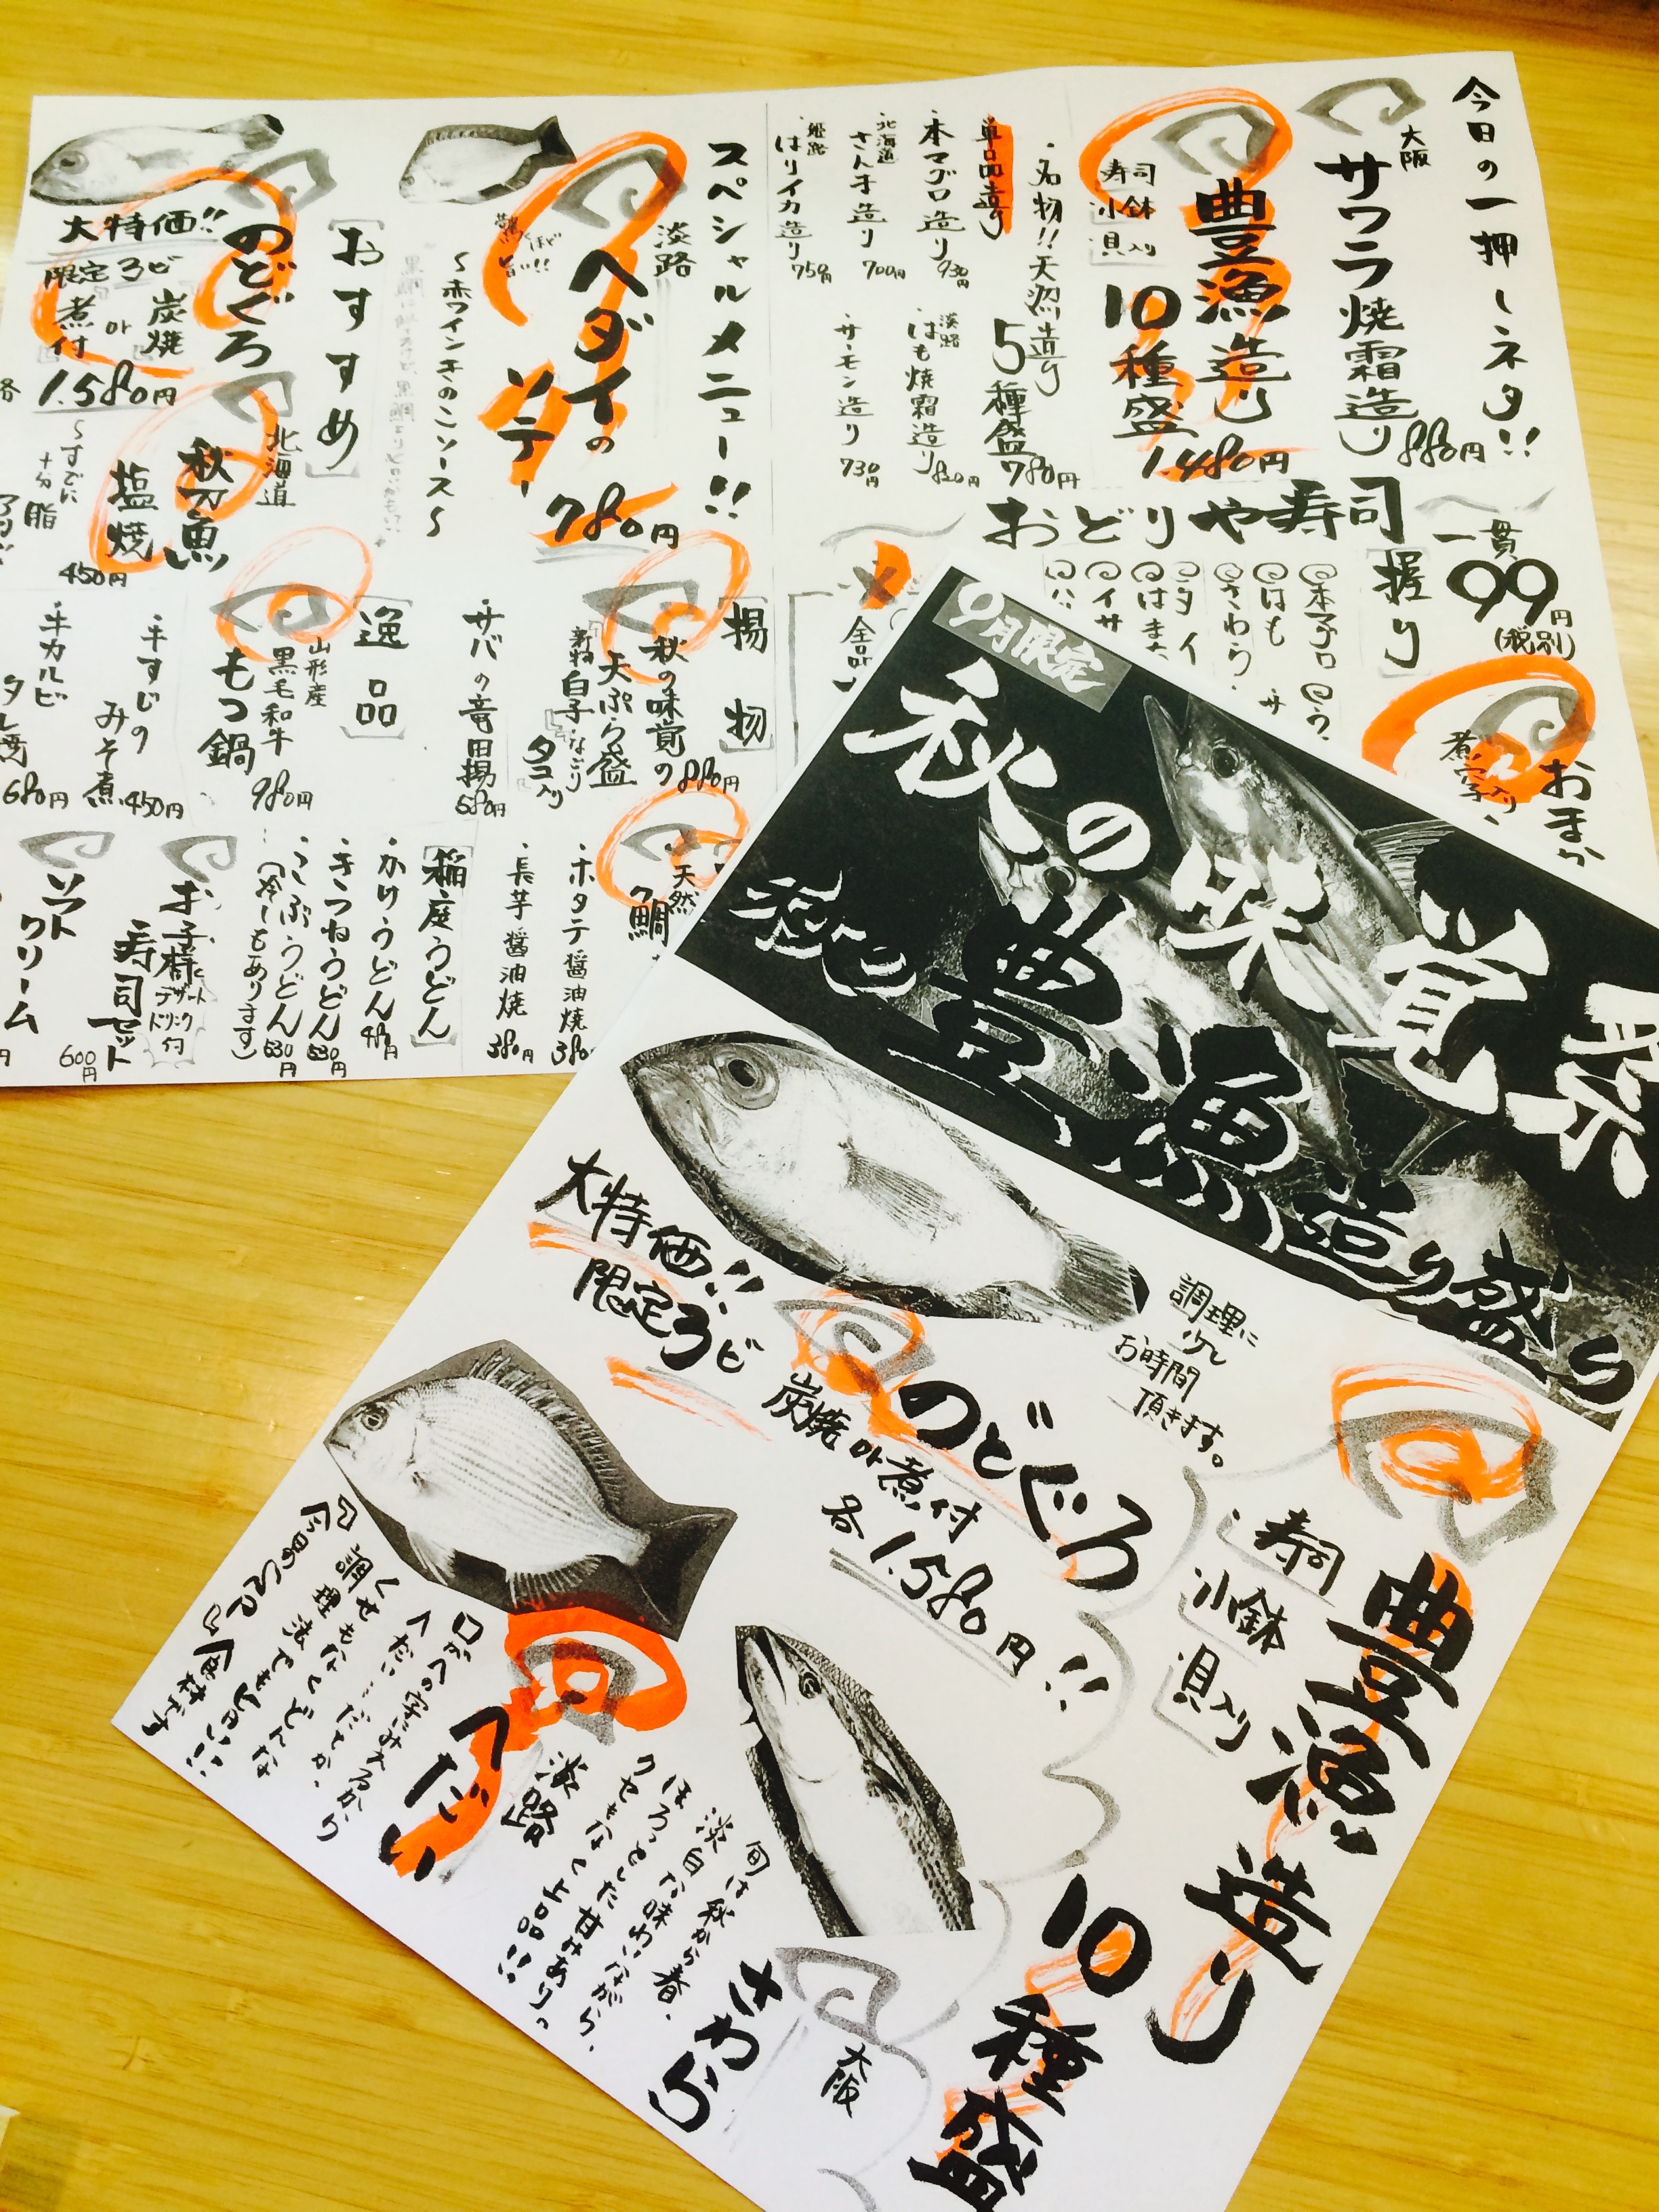 今日の一押しネタ!!
大阪
サワラ焼霜造り
880円
豊漁造り
10種盛
寿司
小鉢
貝入り
1.480円
・名物!!天沼造り
5種盛
780円
単品造り
・本マグロ造り
930円
・北海道
さんま造り
700円
・姫路
はりイカ造り
750円
・淡路
はも焼霜造り
820円
・サーモン造り
730円
おどりや寿司
一貫
99円
(税別)
[握り]
本マグロ
はも
さわら
タイ
はまち
イサ
おまか
煮穴子入り
全品
スペシャルメニュー!!
淡路
ヘダイの
ソテー
驚くほど
旨い!!
〜赤ワインきのこソース〜
780円
[おすすめ]
のどぐろ
大特価!!
限定3ビ
炭焼
or
煮付
各1.580円
北海道
秋刀魚
塩焼
〜すでに
十分脂
450円
[揚物]
秋の味覚の
天ぷら盛
880円
タコ入り
・サバの竜田揚
580円
天然
鯛
・ホタテ醤油焼
380
・長芋醤油焼
380円
[逸品]
山形産
黒毛和牛
もつ鍋
980円
・牛すじの
みそ煮
450円
・牛カルビ
タレ焼
680円
[稲庭うどん]
・かけうどん
・きつねうどん
530円
・こぶうどん
530円
(冷しもあります)
お子様
寿司セット
デザート
ドリンク
付
600円
ソフト
クリーム
9月限定
秋の味覚祭
秋の豊漁造り盛り
大特価!!
限定3ビ
のどぐろ
炭焼or煮付
各1.580円!!
調理に
少し
お時間
頂きます。
豊漁造り
10種盛
寿司
小鉢
貝入り
淡路
へだい
口がへの字にみえるから
へだい…だとか、
くせもなくどんな
調理法でも旨い!!
食材です
大阪
さわら
旬は秋から春、
淡白な味わいながら、
ほろっとした甘みあり。
クセもなく上品!!